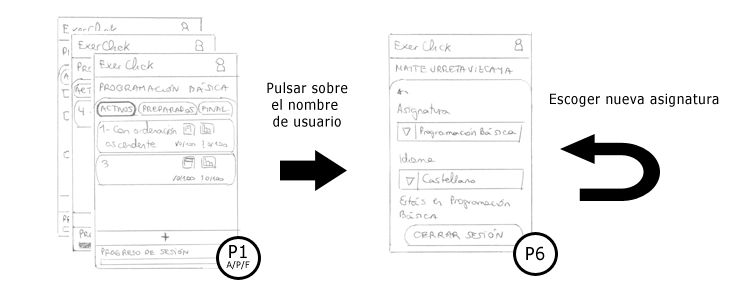 Exer Click
PROGRAMACIÓN BÁSICA
ACTIVOS PREPARADOS FINAL
1- Con ordenación
ascendente 10/100 10/100
3
10/100 10/100
+
PROGRESO DE SESIÓN
P1
A/P/F
Pulsar sobre
el nombre
de usuario
Exer Click
MAITE URRETAVIZCAYA
Asignatura
Programación Básica
Idioma
Castellano
Estás en Programación
Básica
CERRAR SESIÓN
P6
Escoger nueva asignatura